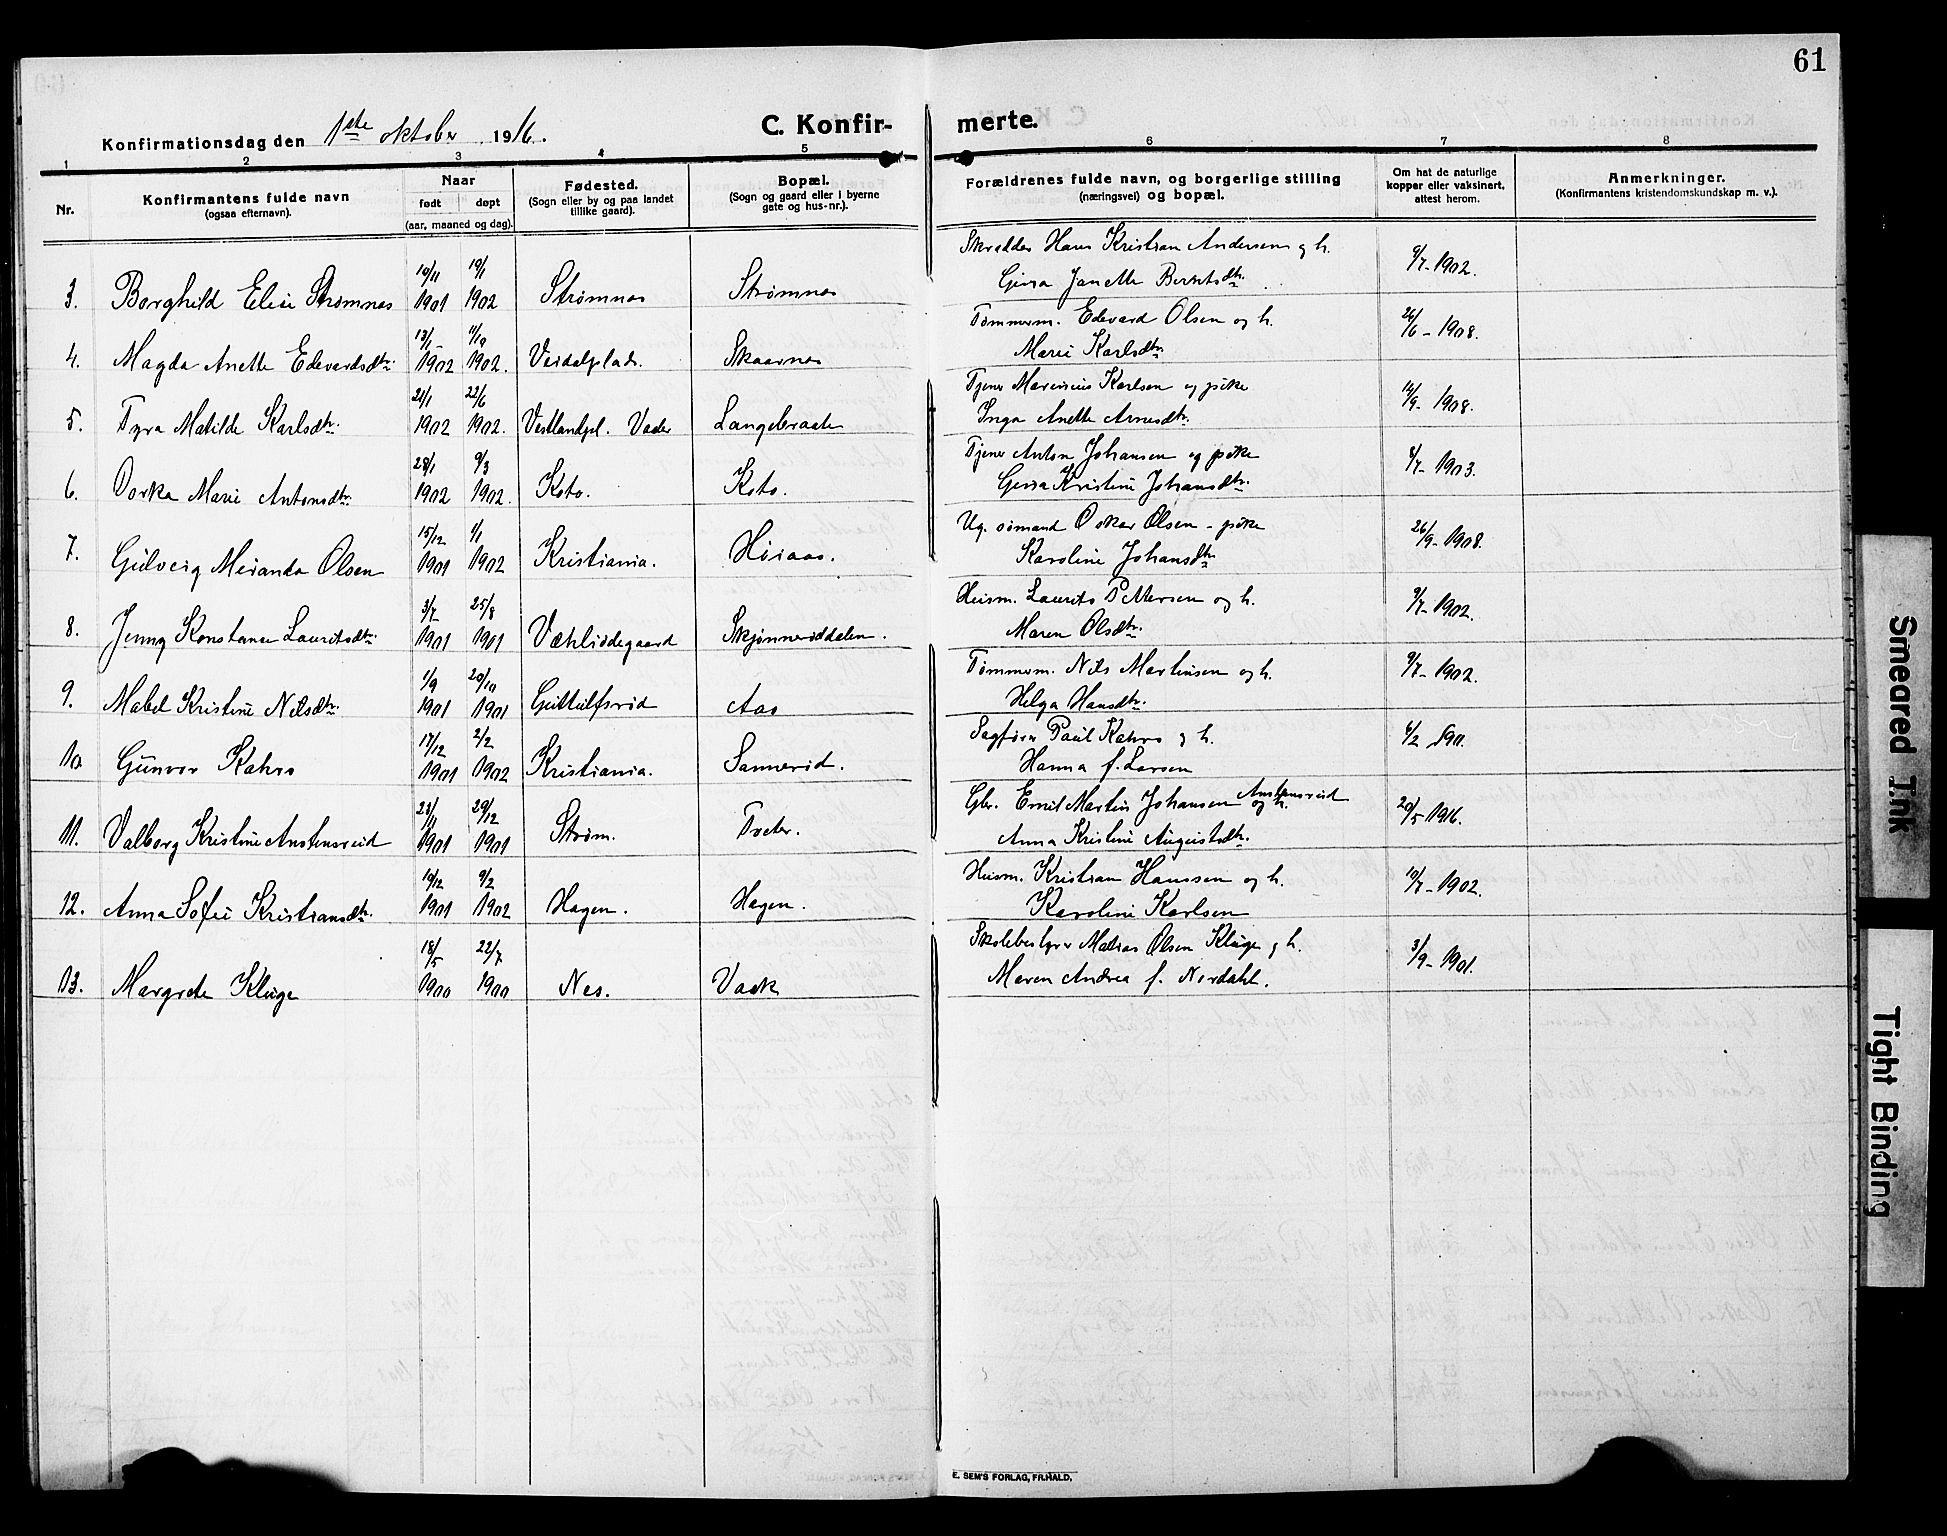 61
Konfirmationsdag den 1ste oktober 1916.
C. Konfirmerte.
1 2 3 4 5 6 7 8
Nr.
Konfirmantens fulde navn
(ogsaa efternavn).
Naar
født døpt
(aar, maaned og dag).
Fødested.
(Sogn eller by og paa landet
tillike gaard).
Bopæl.
(Sogn og gaard eller i byerne
gate og hus-nr.).
Forældrenes fulde navn, og borgerlige stilling
(næringsvei) og bopæl.
Om hat de naturlige
kopper eller vaksinert,
attest herom.
Anmerkninger.
(Konfirmantens kristendomskundskap m. v.).
3. Borghild Elise Strømnes 19/11 1901 19/1 1902 Strømnes Strømnes
Skrædder Hans Kristian Andersen og h.
Gina Janette Berntsdtr. 9/7-1902.
4. Magda Anette Edevardsdtr. 13/1- 1902 11/9 1902. Verdalplads. Skaarnes
Tømmerm. Edevard Olsen og h.
Marie Karlsdtr. 26/6-1908.
5. Tyra Matilde Karlsdtr. 21/1 1902 22/6 1902. Vestlandpl. Langebraate
Tjener Karlsen og pike
Inga Anette Arnesdtr. 14/9-1908.
6. Dorka Marie Antonsdtr. 28/1 1902 9/3 1902. Koto. Koto.
Tjener Anton Johansen og pike
Gina Kristine Johansdtr. 8/7-1903.
7. Gulveig Miranda Olsen 15/12 1901 1/1 1902 Kristiania.
Ug. sømand Oskar Olsen - pike
Karoline Johansdtr. 26/9-1908.
8. Jenny Konstance Lauritsdtr. 3/7 1901 25/8 1901 Skjønnerøddalen.
Husm. Laurits Pettersen og h.
Maren Olsdtr. 9/7-1902.
9. Mabel Kristine Nilsdtr. 1/9 1901 20/10 1901 Guttulfsrød Aas
Tømmerm. Nils Martinsen og h.
Helga Hansdtr. 9/7-1902.
10 Gunvor Kahrs 17/12 1901 2/2 1902 Kristiania. Sannerød.
Sagfører Paul Kahrs og h.
Hanna f. Larsen 6/2 1911.
11. Valborg Kristine Anstensrud 23/11 1901 29/12 1901 Strøm. Tveter.
Gbr. Emil Martin Johansen Anstensrud og h.
Anna Kristine Augustsdtr. 20/5-1916.
12. Anna Sofie Kristiansdtr. 19/12 1901 9/2 1902 Hagen. Hagen.
Husm. Kristian Hanssen og h.
Karoline Karlsen 19/7-1902.
13. Margrete Kluge 18/5 1900 22/7 1900 Nes. Vaek
Skolebestyrer Matias Olsen Kluge og h.
Maren Andrea f. Nordahl. 3/9-1901.
E. SEM'S FORLAG, FR.HALD.
Smeared Ink
Tight Binding